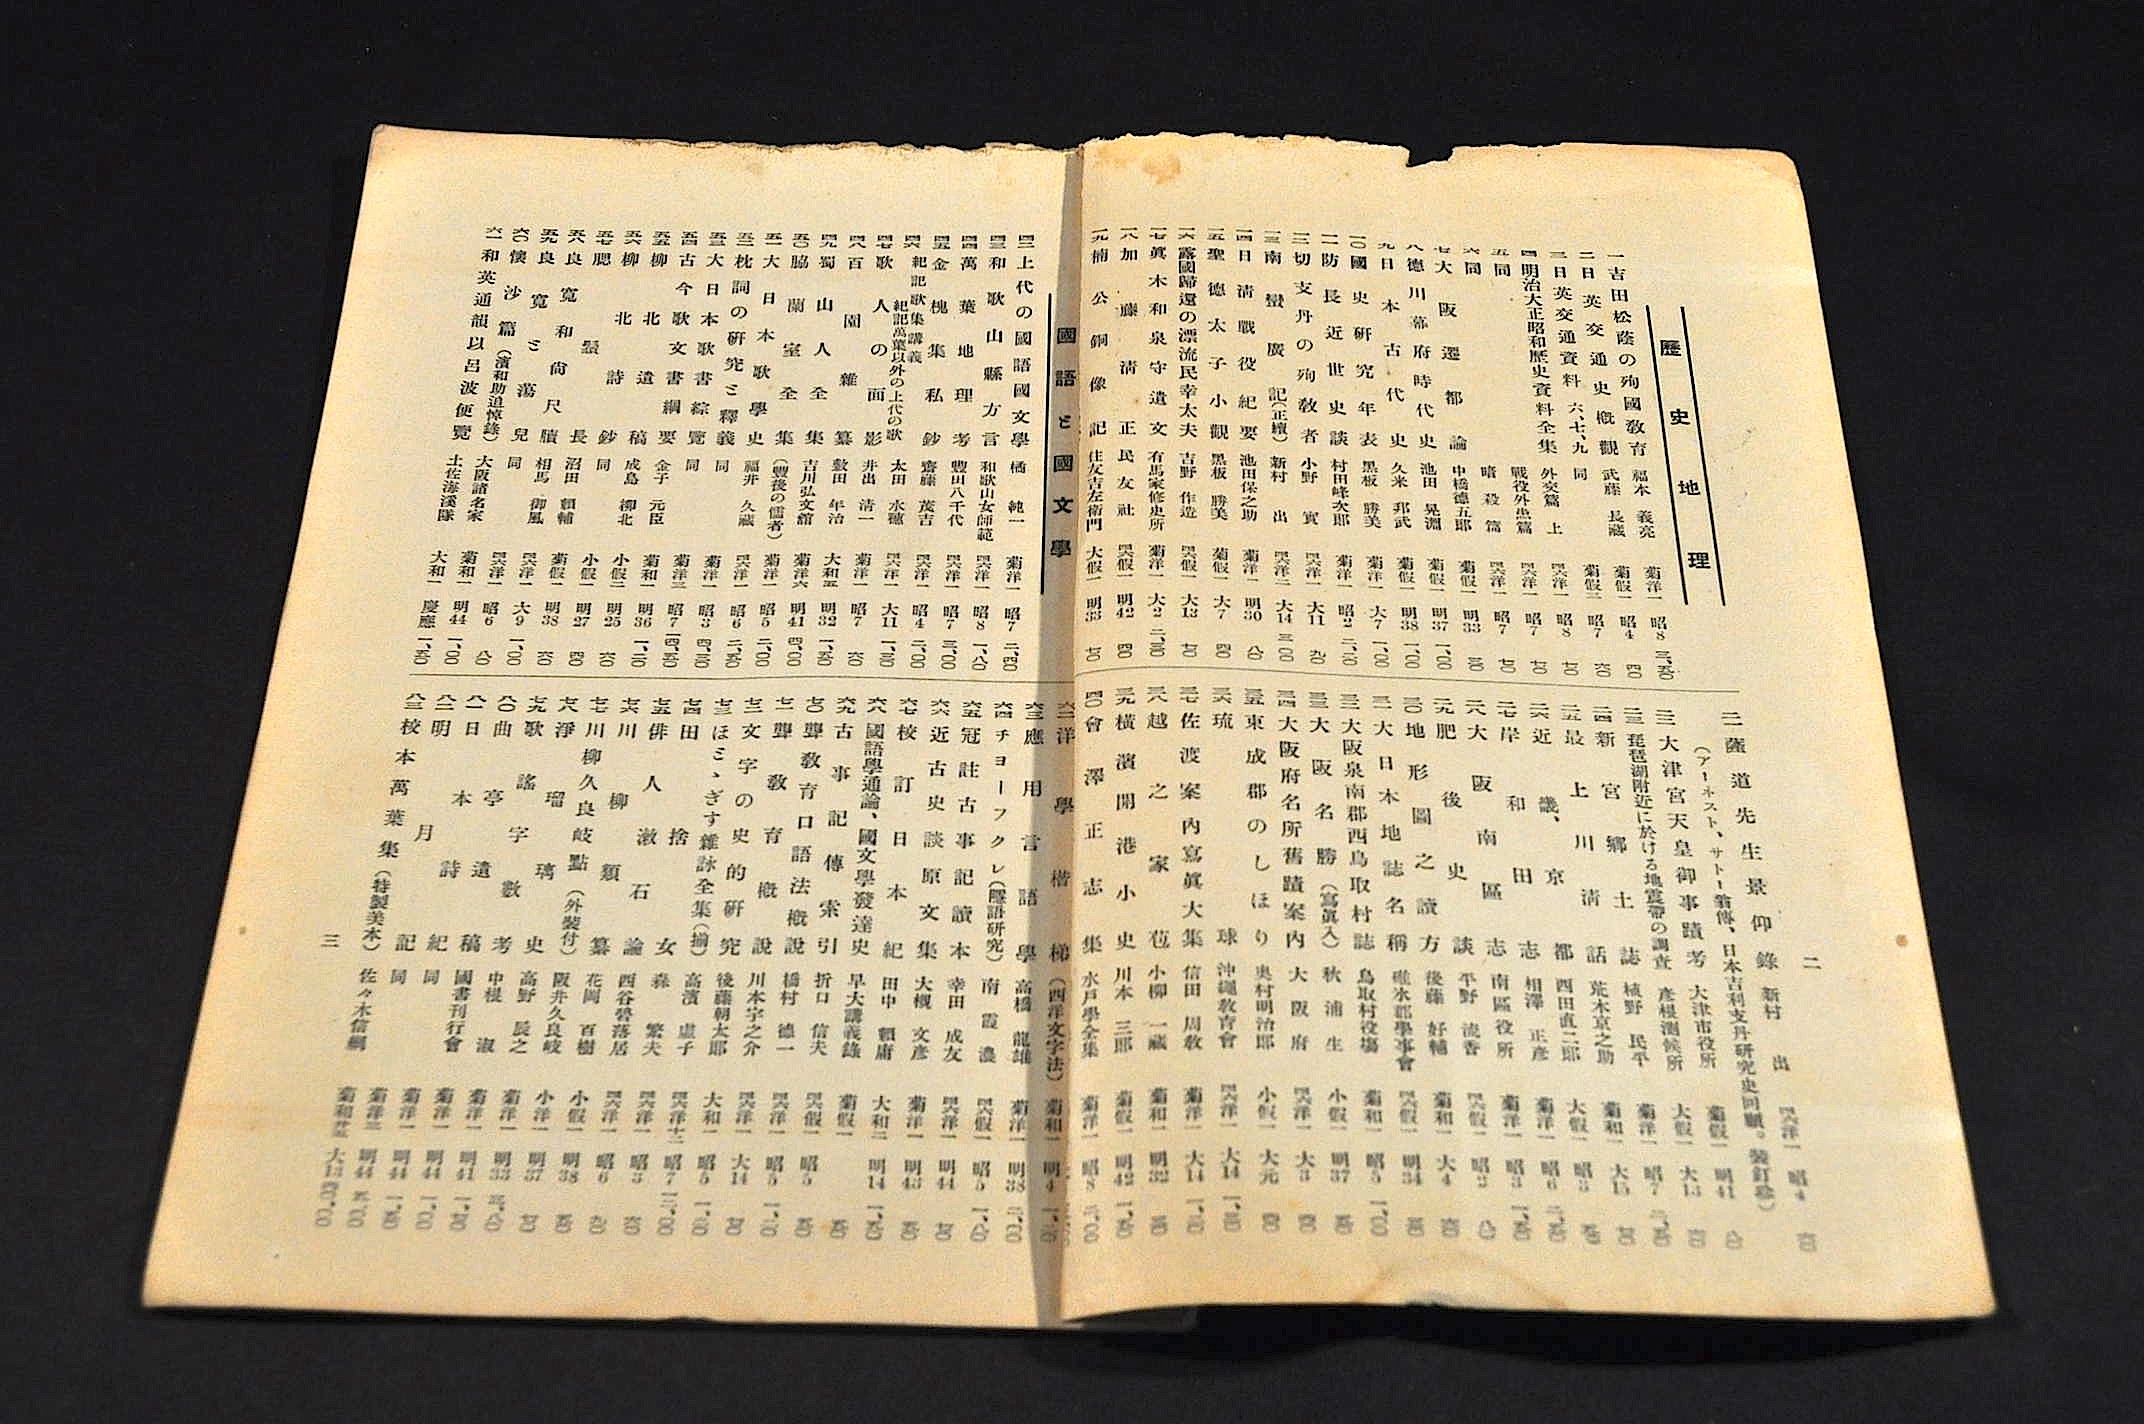 歷史地理
一 吉田松蔭の殉國敎育 福本義亮 菊洋一 昭8 三、五〇
二 日英交通史槪觀 武藤長藏 菊假一 昭4 四〇
三 日英交通資料 六、七、九 同 菊假三 昭7 六〇
四 明治大正昭和歷史資料全集 外交篇 上 四六洋一 昭8 七〇
五 同 戰役外患篇 四六洋一 昭7 七〇
六 同 暗殺篇 四六洋一 昭7 七〇
七 大阪遷都論 中橋德五郎 菊假一 明33
八 德川幕府時代史 池田晃淵 菊假一 明37 一、〇〇
九 日本古代史 久米邦武 菊假一 明38 一、〇〇
一〇 國史硏究年表 黑板勝美 菊洋一 大7 一、〇〇
一一 防長近世史談 村田峰次郎 菊洋一 昭2 二、二〇
一二 切支丹の殉敎者 小野實 四六洋一 大11 九〇
一三 南蠻廣記(正續) 新村出 四六洋二 大14 三、〇〇
一四 日淸戰役紀要 池田保之助 菊洋一 明30 八〇
一五 聖德太子小觀 黑板勝美 菊假一 大7 四〇
一六 露國歸還の漂流民幸太夫 吉野作造 四六假一 大13 七〇
一七 眞木和泉守遺文 有馬家修史所 菊洋一 大2 二、三〇
一八 加藤淸正 民友社 四六假一 明42 四〇
一九 楠公銅像記 住友吉左衛門 大假一 明33 七〇
二一 薩道先生景仰錄 新村出 四六洋一 昭4
(アーネスト、サトー翁傳、日本吉利支丹硏究史回顧。裝釘珍)
二二 大津宮天皇御事蹟考 大津市役所 菊假一 明41 八〇
二三 琵琶湖附近に於ける地震帶の調査 彥根測候所 大假一 大13
二四 新宮鄕土誌 植野民平 菊洋一 昭7
二五 最上川淸話 荒木京之助 菊和一 大15
二六 近畿、京都 西田直二郎 大假一 昭3
二七 岸和田志 相澤正彥 菊洋一 昭6
二八 大阪南區志 南區役所 菊洋一 昭3
二九 肥後史談 平野流香 四六假一 昭2 八〇
三〇 地形圖之讀方 後藤好輔 菊和一 大4
三一 大日本地誌名稱 碓氷郡學事會 四六假一 明34
三二 大阪泉南郡西鳥取村誌 鳥取村役塲 菊和一 昭5 一、〇〇
三三 大阪名勝(寫眞入) 秋浦生 小假一 明37
三四 大阪府名所舊蹟案內 大阪府 四六洋一 大3
三五 東成郡のしほり 奧村明治郎 小假一 大元
三六 琉球 沖繩敎育會 四六洋一 大14
三七 佐渡案內寫眞大集 信田周敎 菊洋一 大14
三八 越之家苞 小柳一藏 菊和一 明32
三九 橫濱開港小史 川本三郎 菊假一 明42
四〇 會澤正志集 水戶學全集 菊洋一 昭8 二、〇〇
二
國語と國文學
四二 上代の國語國文學 橘純一 菊洋一 昭7 二、四〇
四三 和歌山縣方言 和歌山女師範 四六洋一 昭8 一、八〇
四四 萬葉地理考 豐田八千代 菊洋一 昭7 三、〇〇
四五 金槐集私鈔 齋藤茂吉 四六洋一 昭4 二、〇〇
四六 紀記歌集講義 紀記萬葉以外の上代の歌 太田水穗 四六洋一 大11
四七 歌人の面影 井出淸一 菊洋一 昭7 六〇
四八 百園雜纂 敷田年治 大和五 明32
四九 蜀山人全集 吉川弘文館 菊洋六 明41 四、〇〇
五〇 脇蘭室全集 (豐後の儒者) 菊洋一 昭5 二、〇〇
五一 大日本歌學史 福井久藏 四六洋一 昭6
五二 枕詞の硏究と釋義 同 菊洋一 昭3
五三 大日本歌書綜覽 同 菊洋三 昭7
五四 古今歌文書綱要 金子元臣 菊和一 明36
五五 柳北遺稿 成島柳北 小假二 明25 六〇
五六 柳北詩鈔 同 小假一 明27 四〇
五七 腮鬚長 沼田賴輔 菊假一 明38 六〇
五八 良寬和尙尺牘 相馬御風 四六洋一 大9 一、〇〇
五九 良寬と蕩兒 同 四六洋一 昭6 八〇
六〇 懷沙篇(濱和助追悼錄) 大阪諸名家 菊和一 明44 一、〇〇
六一 和英通韻以呂波便覽 土佐海溪隊 大和一 慶應
六二 洋學楷梯(西洋文字法) 菊和一 明4
六三 應用言語學 高橋龍雄 菊洋一 明38 二、〇〇
六四 チョーフクレ(隱語硏究) 南霞濃 四六假一 昭5 一、八〇
六五 冠註古事記讀本 幸田成友 四六洋一 明44 七〇
六六 近古史談原文集 大槻文彥 菊洋一 明43
六七 校訂日本紀 田中賴庸 大和二 明14
六八 國語學通論、國文學發達史 早大講義錄 菊假一
六九 古事記傳索引 折口信夫 四六假一 昭5
七〇 聾敎育口語法槪說 橋村德一 四六洋一 昭5
七一 聾敎育槪說 川本宇之介 四六洋一 大14 七〇
七二 文字の史的硏究 後藤朝太郎 大和一 昭5
七三 ほとゝぎす雜詠全集(揃) 高濱虛子 四六洋十二 昭7 三、〇〇
七四 田捨女 森繁夫 四六洋一 昭3 六〇
七五 俳人漱石論 西谷勢落居 四六洋一 昭6
七六 川柳類纂 花岡百樹 小假一 明38
七七 川柳久良岐點(外裝付) 阪井久良岐 小洋一 明37 七〇
七八 淨瑠璃史 高野辰之 菊洋一 明33 三、八〇
七九 歌謠字數考 中根淑 菊洋一 明41
八〇 曲亭遺稿 國書刊行會 菊洋一 明44 一、〇〇
八一 日本詩紀 同 菊洋一 明44
八二 明月記 同 菊洋三 明44 五、〇〇
八三 校本萬葉集(特製美本) 佐々木信綱 菊和廿五 大13
三